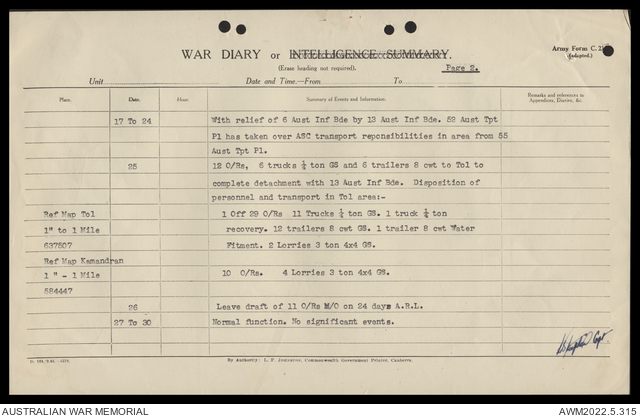 WAR DIARY or INTELLIGENCE SUMMARY.
(Erase heading not required).
Army Form C.
(Adapted.)
Page 2.
Unit Date and Time.—From To
Place. Date. Hour. Summary of Events and Information. Remarks and references to Appendices, Diaries, &c.
17 To 24 With relief of 6 Aust Inf Bde by 13 Aust Inf Bde. 52 Aust Tpt
Pl has taken over ASC transport reponsibilities in area from 55
Aust Tpt Pl.
25 12 O/Rs, 6 trucks ¼ ton GS and 6 trailers 8 cwt to Tol to
complete detachment with 13 Aust Inf Bde. Disposition of
personnel and transport in Tol area:-
Ref Map Tol 1 Off 29 O/Rs 11 Trucks ¼ ton GS. 1 truck ¼ ton
1" to 1 Mile recovery. 12 trailers 8 cwt GS. 1 trailer 8 cwt Water
637507 Fitment. 2 Lorries 3 ton 4x4 GS.
Ref Map Kamandran
1 " - 1 Mile 10 O/Rs. 4 Lorries 3 ton 4x4 GS.
584447
26 Leave draft of 11 O/Rs M/O on 24 days A.R.L.
27 To 30 Normal function. No significant events.
Capt
By Authority: L. F. Johnston, Commonwealth Government Printer, Canberra
AUSTRALIAN WAR MEMORIAL
AWM2022.5.315